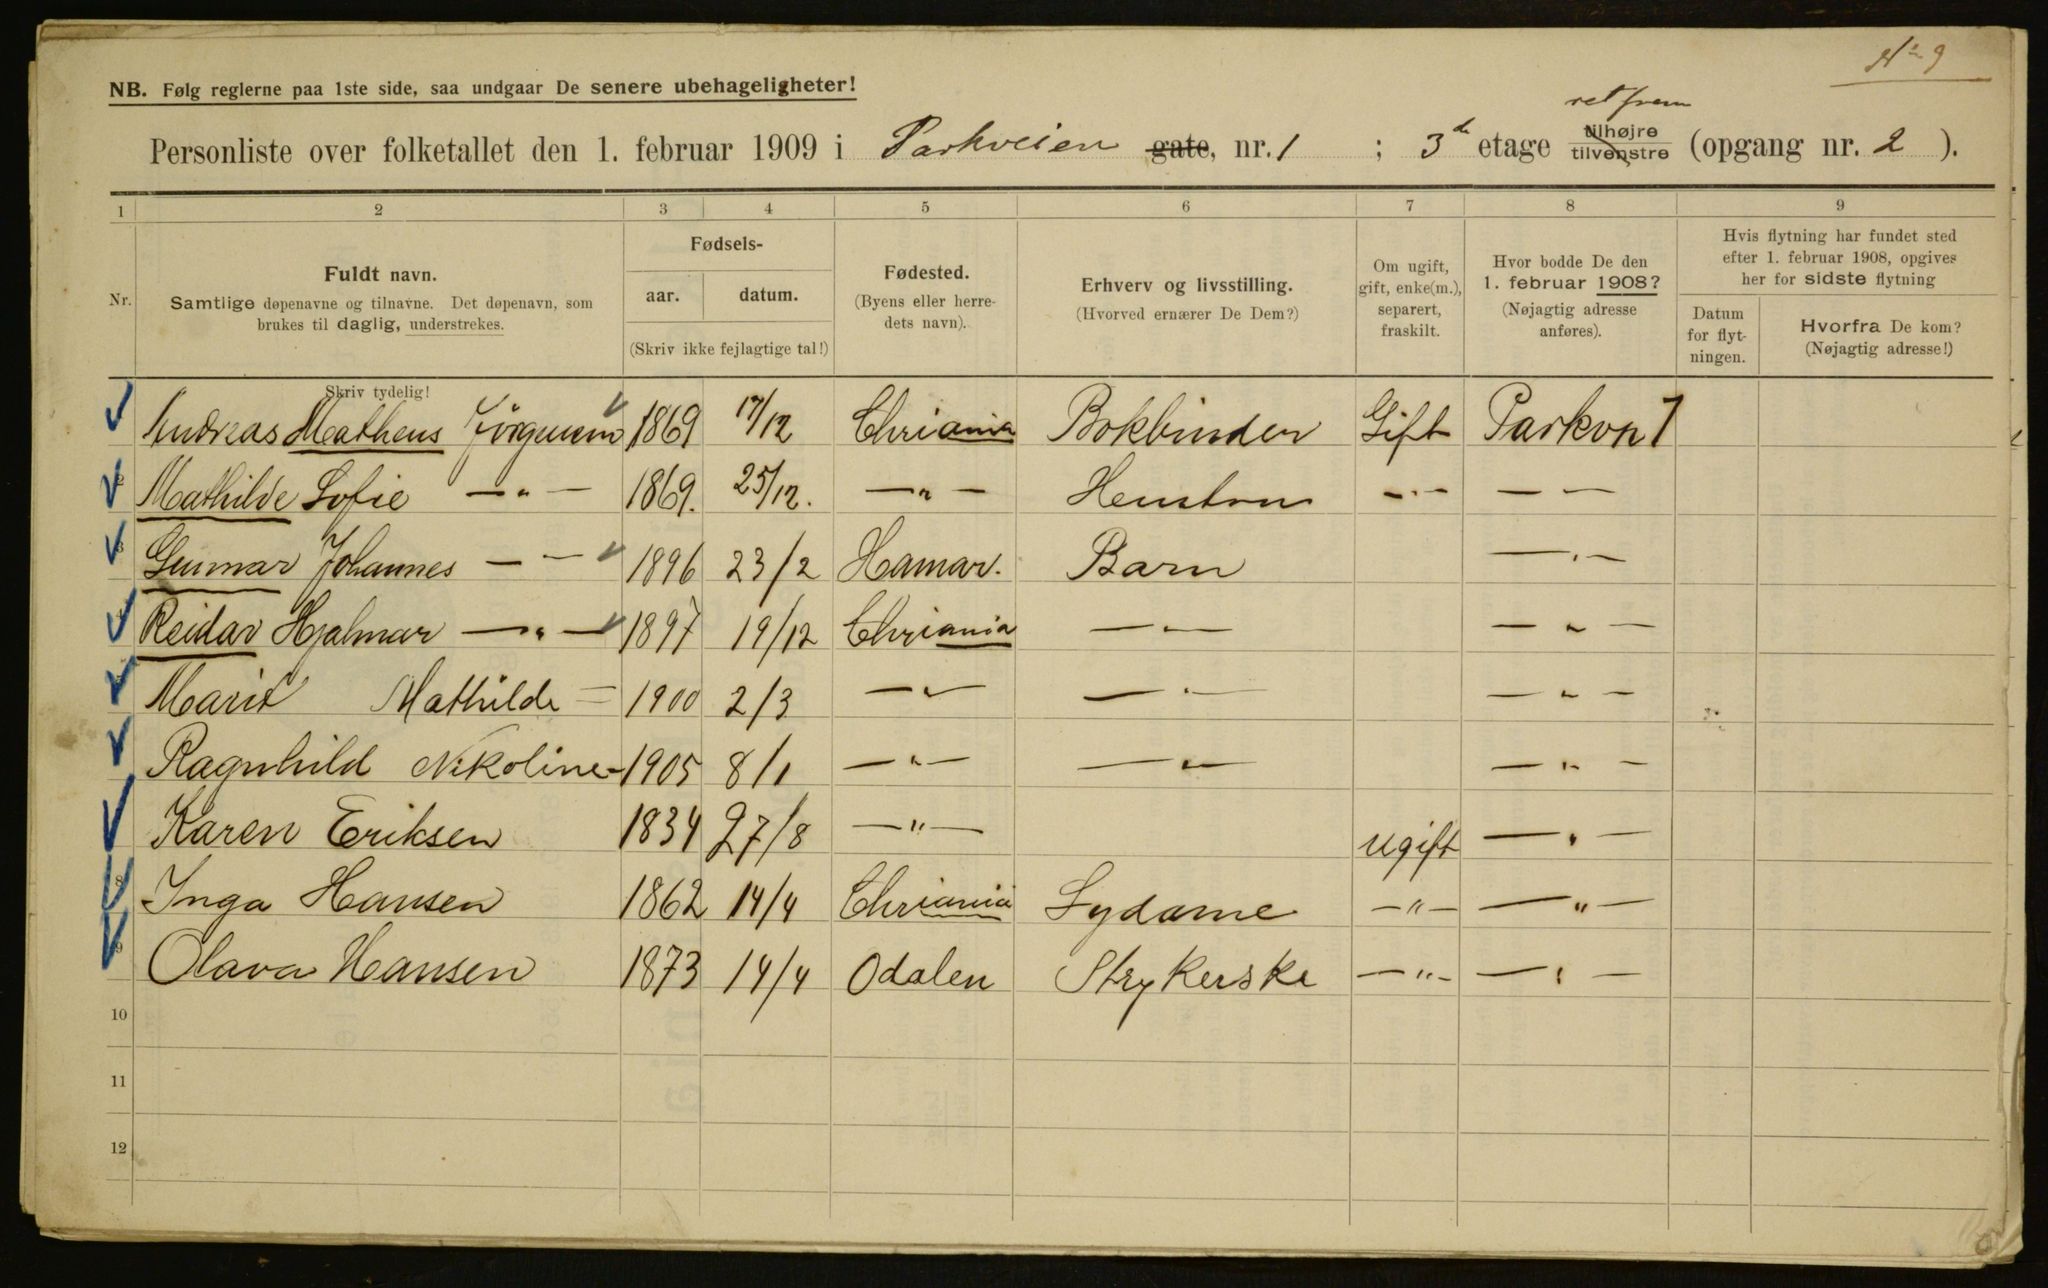 No 9
NB. Følg reglerne paa 1ste side, saa undgaar De senere ubehageligheter!
ret frem
Personliste over folketallet den 1. februar 1909 i Parkveien gate, nr. 1 ; 3d etage tilhøjre tilvenstre (opgang nr. 2 ).
1 2 3 4 5 6 7 8 9
Nr.
Fuldt navn.
Samtlige døpenavne og tilnavne. Det døpenavn, som
brukes til daglig, understrekes.
Fødsels-
aar. datum.
(Skriv ikke fejlagtige tal!)
Fødested.
(Byens eller herre-
dets navn).
Erhverv og livsstilling.
(Hvorved ernærer De Dem?)
Om ugift,
gift, enke(m.),
separert,
fraskilt.
Hvor bodde De den
1. februar 1908?
(Nøjagtig adresse
anføres).
Hvis flytning har fundet sted
efter 1. februar 1908, opgives
her for sidste flytning
Datum
for flyt-
ningen.
Hvorfra De kom?
(Nøjagtig adresse!)
Skriv tydelig!
Andreas Matheus Jörgensen 1869 17/12 Chriania Bokbinder Gift Parkvn 1
2 Mathilde Sofie —„— 1869. 25/12. —„— Hustru —„— — —
3 Gunnar Johannes — — 1896 23/2 Hamar. Barn —„—
4 Reidar Hjalmar —„— 1897 19/12 Chriania —„— —„—
5 Marit Mathilde — 1900 2/3 —„— —„— —„—
Ragnhild Nikoline - 1905 8/1 —„— —„— —„—
Karen Eriksen 1834 27/8 —„— ugift —„—
8 Inga Hansen 1862 14/4 Chriania Sydame —„— —„—
9 Olava Hansen 1873 14/4 Odalen Strykerske —„— —„—
10
11
12